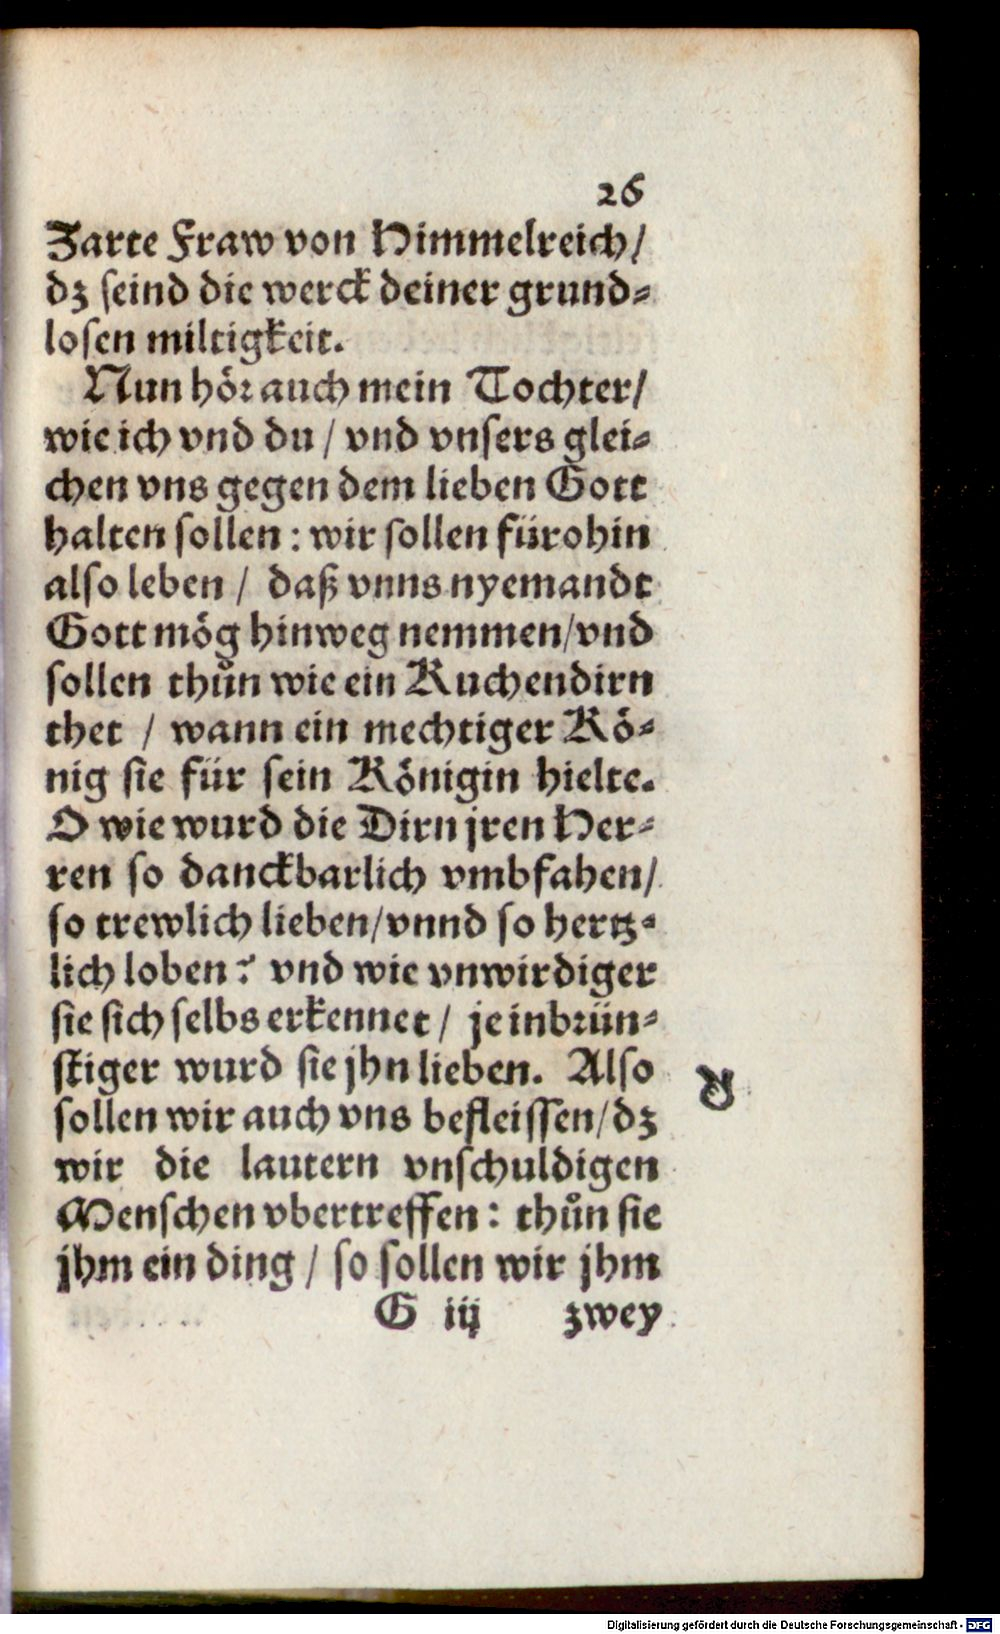 26
Zarte Fraw von Himmelreich/
dz seind die werck deiner grund⸗
losen miltigkeit.
Nun hör auch mein Tochter/
wie ich vnd du / vnd vnsers glei⸗
chen vns gegen dem lieben Gott
halten sollen : wir sollen fürohin
also leben / daß vnns nyemandt
Gott mög hinweg nemmen/vnd
sollen thůn wie ein Kuchendirn
thet / wann ein mechtiger Kö⸗
nig sie für sein Königin hielte.
O wie wurd die Dirn jren Her⸗
ren so danckbarlich vmbfahen/
so trewlich lieben/vnnd so hertz⸗
lich loben? vnd wie vnwirdiger
sie sich selbs erkennet / je inbrün⸗
stiger wurd sie jhn lieben. Also
sollen wir auch vns befleissen/dz
wir die lautern vnschuldigen
Menschen vbertreffen : thůn sie
jhm ein ding / so sollen wir jhm
G iij zwey
Digitalisierung gefördert durch die Deutsche Forschungsgemeinschaft - DFG